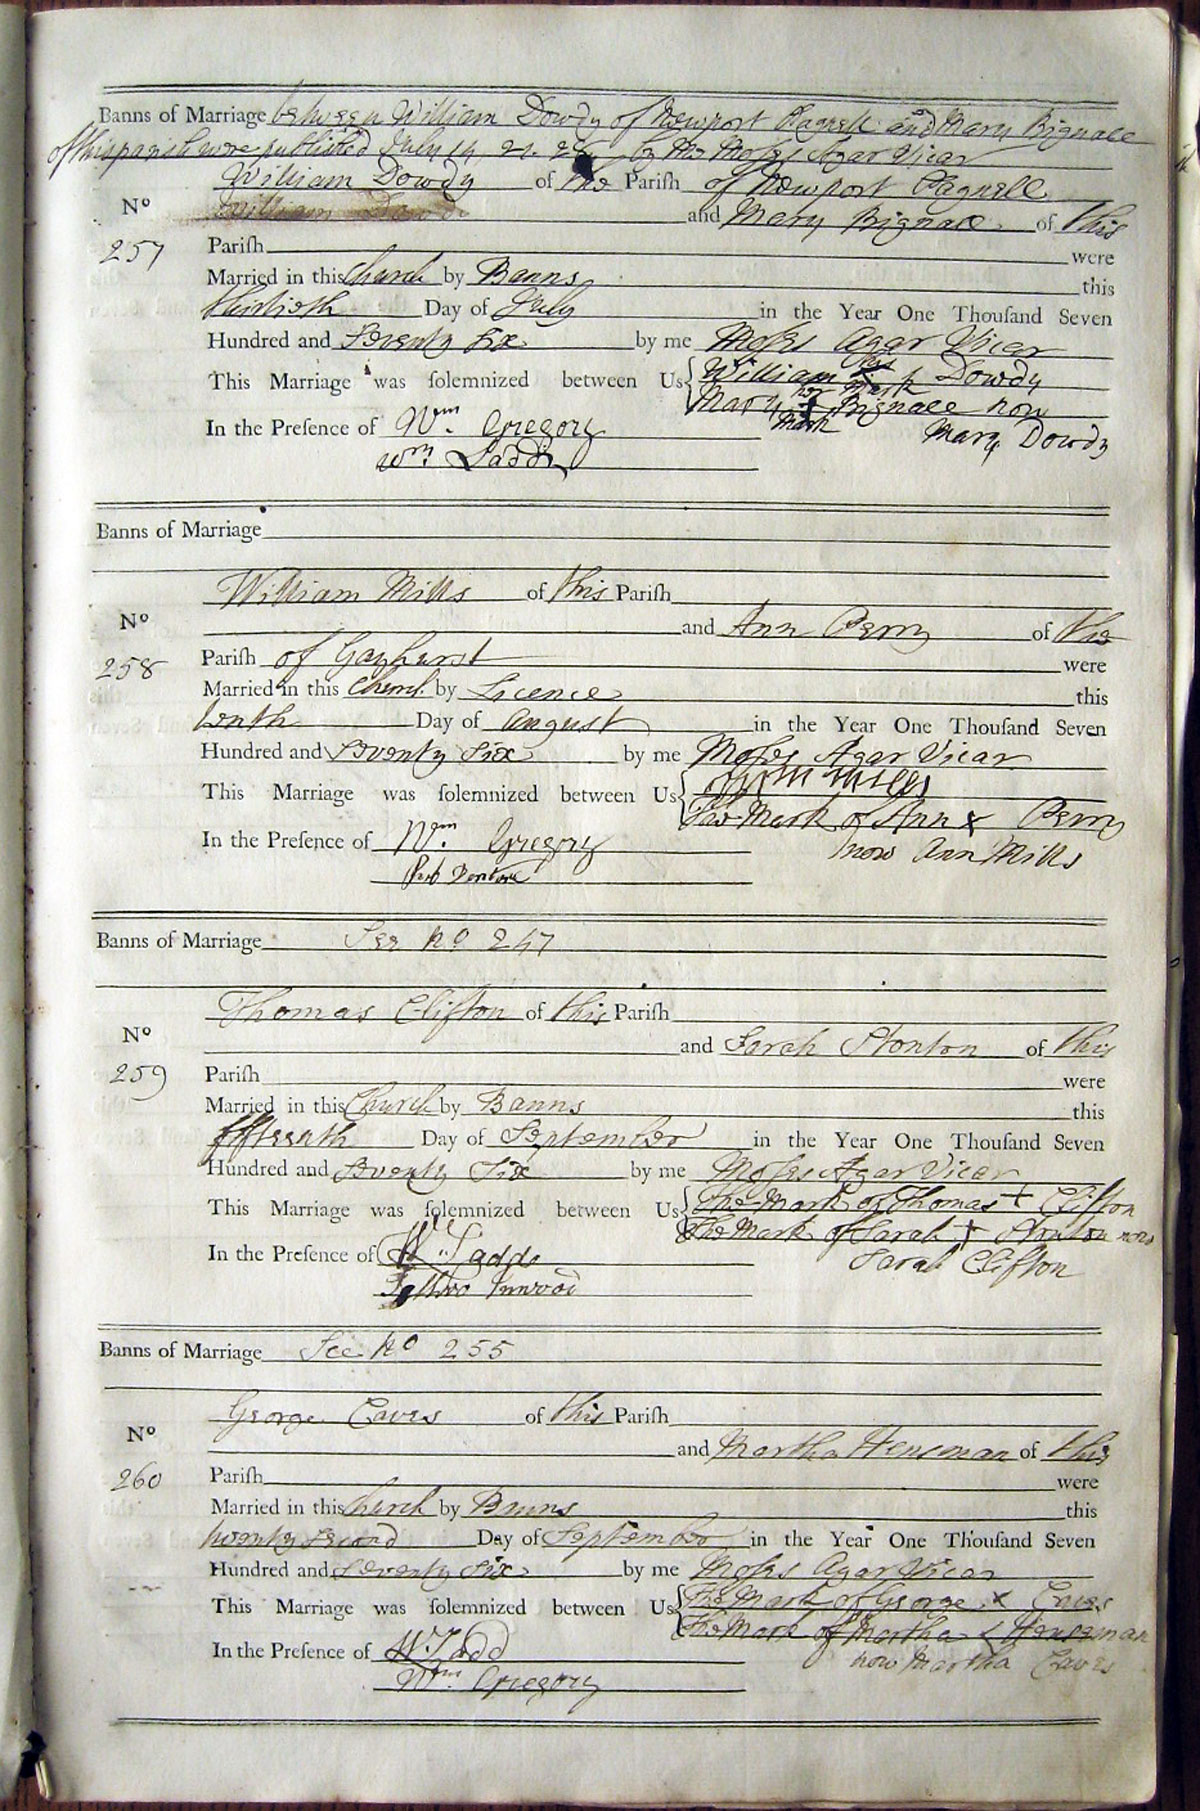 Banns of Marriage between William Dowdy of Newport Pagnell and Mary Bignall
of this parish were published July 14, 21. 28 by Me Moses Agar Vicar
William Dowdy of the Pariſh of Newport Pagnell
No William Dowdy and Mary Bignall of this
257 Pariſh were
Married in this Church by Banns this
thirtieth Day of July in the Year One Thouſand Seven
Hundred and Seventy Six by me Moſes Agar Vicar
This Marriage was ſolemnized between Us William his X mark Dowdy
Mary her + mark Bignall now
In the Preſence of Wm. Gregory Mary Dowdy
Wm. Ladds
Banns of Marriage
William Mills of this Pariſh
No and Ann Perry of the
258 Pariſh of Gayhurst were
Married in this Church by Licence this
tenth Day of August in the Year One Thouſand Seven
Hundred and Seventy Six by me Moſes Agar Vicar
This Marriage was ſolemnized between Us Mills
The Mark of Ann X Perry
In the Preſence of Wm. Gregory now Ann Mills
Banns of Marriage See No 247
Thomas Clifton of this Pariſh
No and Sarah Stonton of this
259 Pariſh were
Married in this Church by Banns this
fifteenth Day of September in the Year One Thouſand Seven
Hundred and Seventy Six by me Moſes Agar Vicar
This Marriage was ſolemnized between Us The Mark of Thomas + Clifton
The Mark of Sarah + Stonton now
In the Preſence of W. Ladds Sarah Clifton
Inwood
Banns of Marriage See No 255
George Eaves of this Pariſh
No and Martha Henseman of this
260 Pariſh were
Married in this Church by Banns this
twenty second Day of September in the Year One Thouſand Seven
Hundred and Seventy Six by me Moſes Agar Vicar
This Marriage was ſolemnized between Us The Mark of George X Eaves
The Mark of Martha X Henseman
In the Preſence of W. Ladd now Martha Eaves
Wm. Gregory